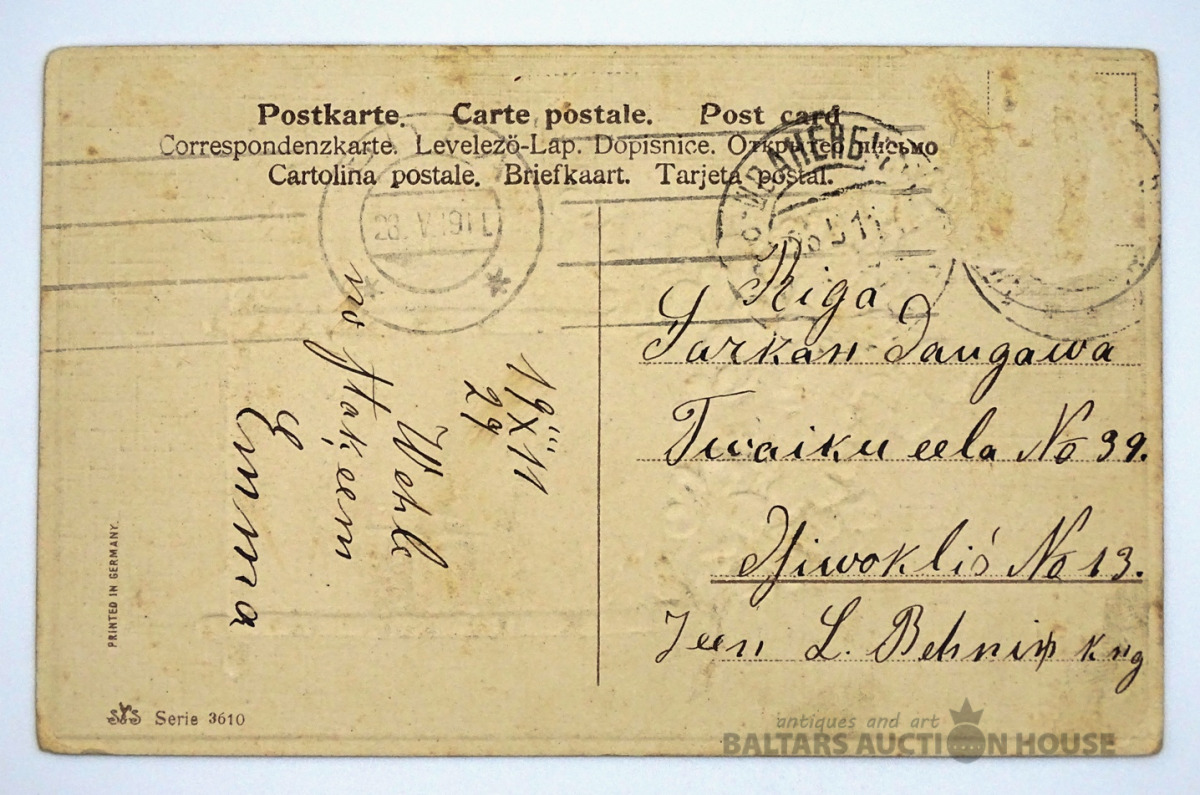 Postkarte. Carte postale. Post card
Correspondenzkarte. Levelező-Lap. Dopisnice. Открытое письмо
Cartolina postale. Briefkaart. Tarjeta postal.
28.V.1911
Riga
Sarkan Daugawa
Twaiku eela No 39.
Dsiwoklis No 13.
Jeen L. Behrsin kng
19 X 11
29
Wehl
no
Emma
PRINTED IN GERMANY.
Serie 3610
antiques and art
BALTARS AUCTION HOUSE